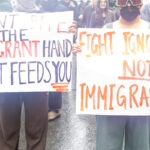 N'T BITE
THE
GRANT HAND
T FEEDS YOU
FIGHT IGNO
NOT
IMMIGRA